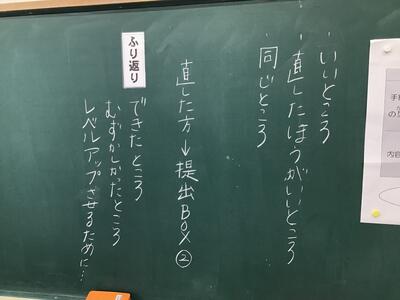 ・いいところ
・直したほうがいいところ
・同じところ
直した方→提出BOX②
ふり返り
できたところ
むずかしかったところ
レベルアップさせるために…
内容